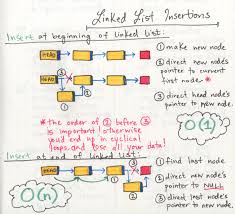 Linked List Insertions
Insert at beginning of Linked List:
HEAD
① make new node
② direct new node's
pointer to current
first node *
③ direct head node's
pointer to new node.
HEAD
③
②
①
* the order of ② before ③
is important otherwise
you'd end up in cyclical
loops and lose all your data!
O(1)
Insert at end of Linked List:
HEAD
①
③
②
① find last node
② direct new node's
pointer to NULL
③ direct last node's
pointer to new node.
O(n)